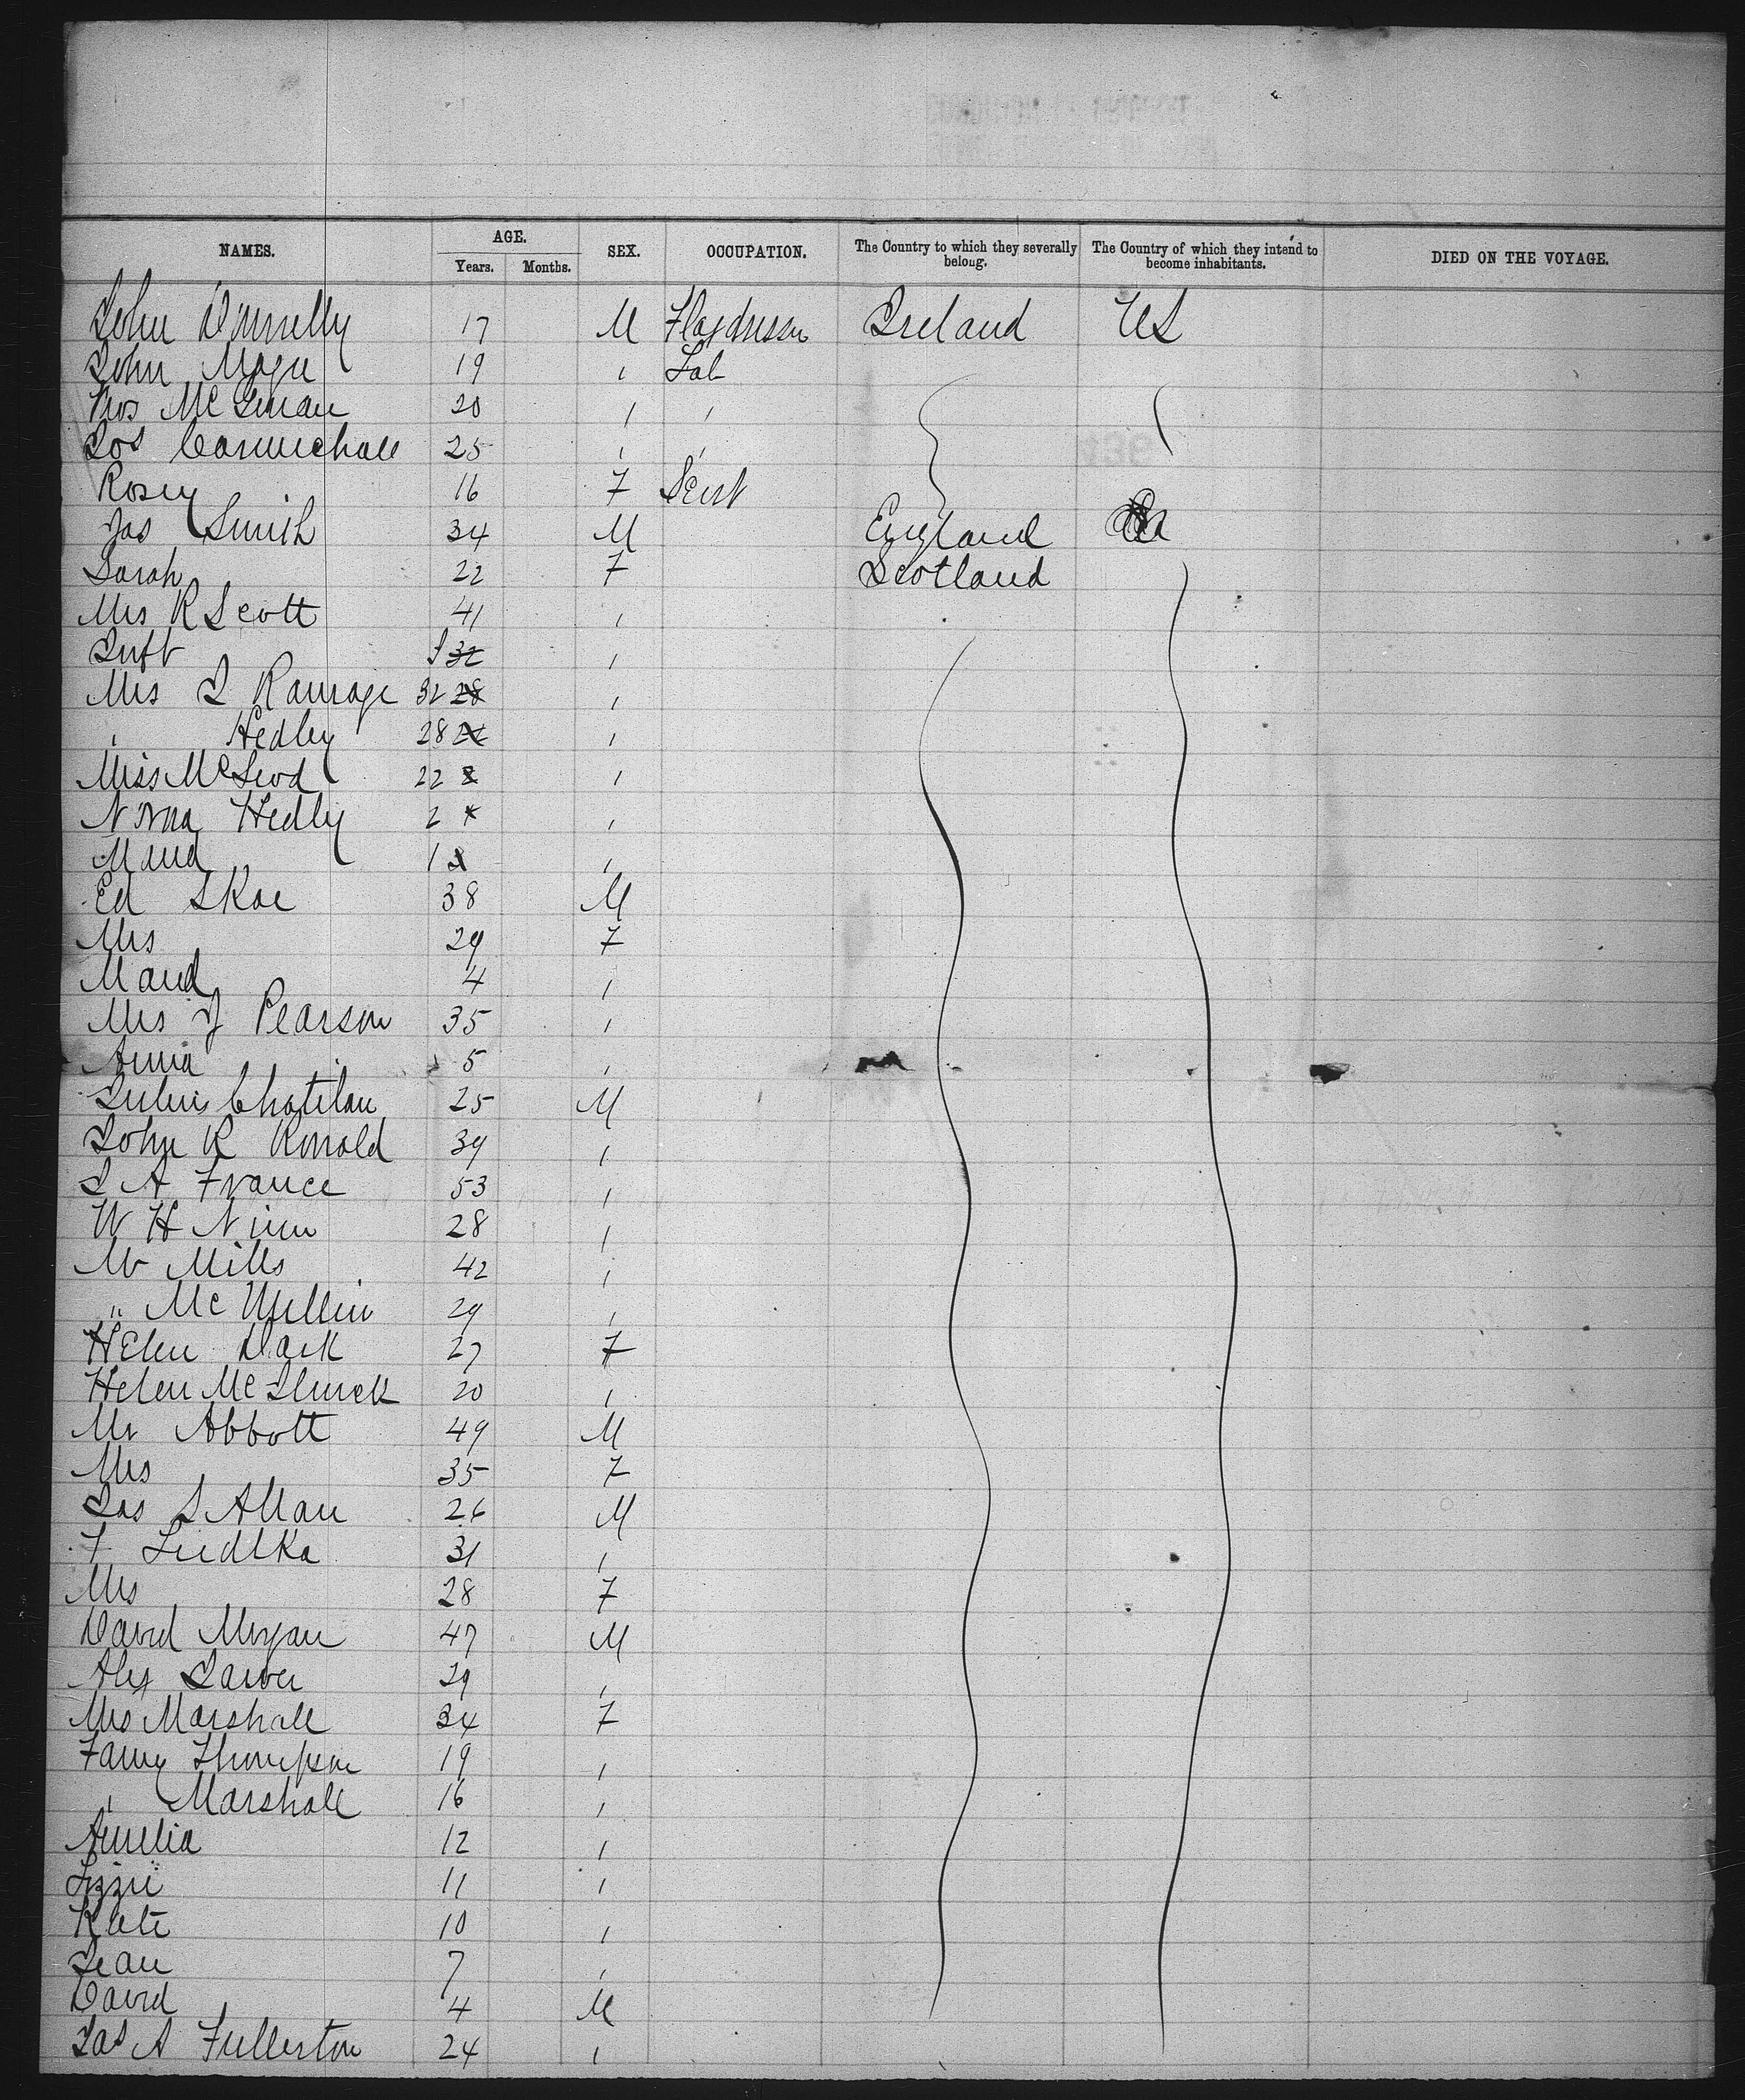 NAMES. AGE. Years. Months. SEX. OCCUPATION. The Country to which they severally belong. The Country of which they intend to become inhabitants. DIED ON THE VOYAGE.
John Donnelly 17 M Flaxdresser Ireland US
John Magee 19 " Lab
20 " "
Jos Carmichael 25 " "
Rosey 16 F Servt
Jas Smith 34 M England
Sarah 22 F Scotland
Mrs R Scott 41 "
Inft 32 "
Mrs J Ramage 32 28 "
" Hedley 28 22 "
Miss McLeod 22 2 "
Norna Hedley 2 "
Maud 1 "
Ed Skae 38 M
Mrs 29 F
Maud 4 "
Mrs J Pearson 35 "
Anna 5 "
Julius Chatelan 25 M
John R Ronald 39 "
J A France 53 "
W H Nimm 28 "
Mr Mills 42 "
" McMillin 29 "
Helen Dark 27 F
Helen 20 "
Mr Abbott 49 M
Mrs 35 F
Jas S Allan 26 M
F Liedtka 31 "
Mrs 28 F
David Morgan 47 M
Alex 29 "
Mrs Marshall 34 F
Fanny Thompson 19 "
" Marshall 16 "
Amelia 12 "
Lizzie 11 "
Kate 10 "
Jean 7 "
David 4 M
Jas A Fullerton 24 "